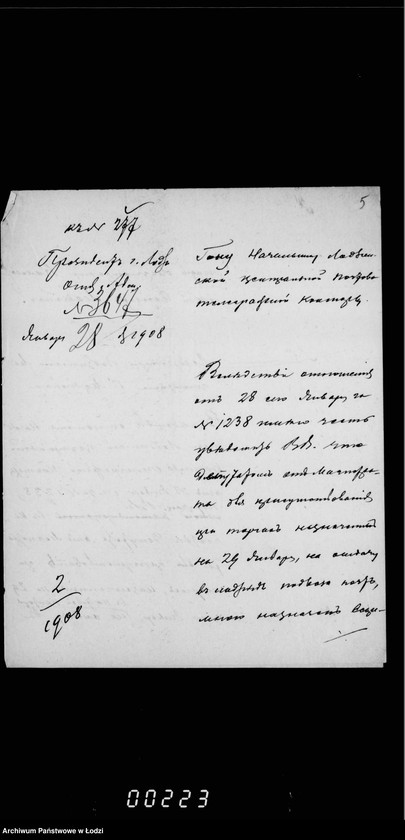 5
къ № 277
Президентъ г. Лодзи
№ 3647
Января 28 д. 1908
Гону Начальнику Лодзин-
ской центральной почтово
телеграфной конторы.
Вслѣдствіе отношенія
отъ 28 сего Января за
№ 1238 имѣю честь
увѣдомить В.В. что
Депутатомъ отъ Магистра-
та для присутствованія
при торгахъ назначенныхъ
на 29 Января, на отдачу
въ подрядъ подвоза почт,
мною назначенъ
2
1908
00223
Archiwum Państwowe w Łodzi